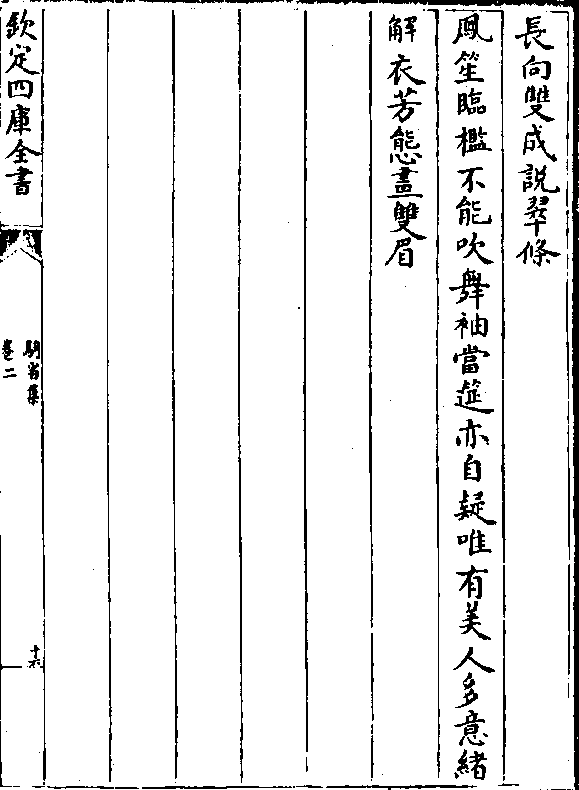 長向雙成說翠條
鳳笙臨檻不能吹舞袖當筵亦自疑唯有美人多意緒
解衣芳態畫雙眉
欽定四庫全書
騎省集
卷二
十六